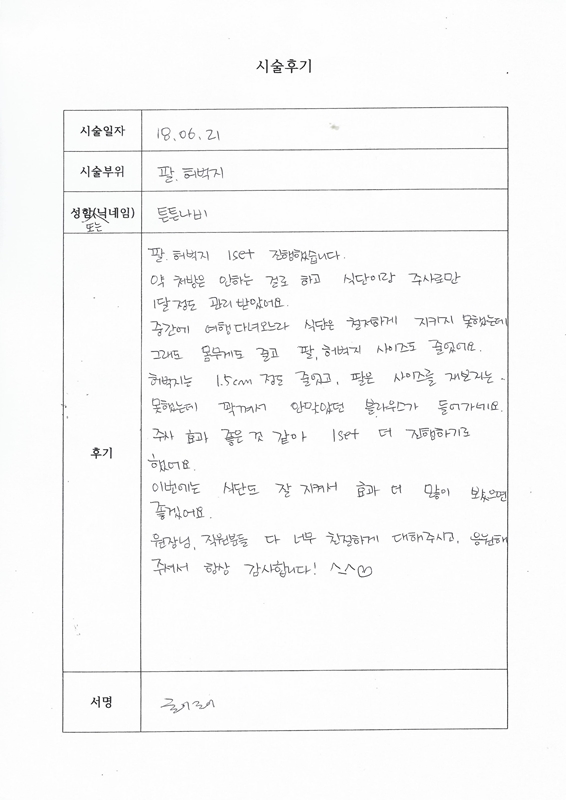 시술후기
시술일자 18.06.21
시술부위 팔.허벅지
성함(닉네임) 튼튼나비
또는
후기
팔.허벅지 1set 진행했습니다.
약 처방은 안하는 걸로 하고 식단이랑 주사로만
1달정도 관리 받았어요.
중간에 여행다녀오느라 식단은 철저하게 지키지 못했는데
그래도 몸무게도 줄고 팔, 허벅지 사이즈도 줄었어요.
허벅지는 1.5cm 정도 줄었고, 팔은 사이즈를 재보지는
못했는데 꽉껴서 안맞았던 블라우스가 들어가네요.
주사 효과 좋은 것 같아 1set 더 진행하기로
했어요.
이번에는 식단도 잘 지켜서 효과 더 많이 봤으면
좋겠어요.
원장님, 직원분들 다 너무 친절하게 대해주시고, 응원해
주셔서 항상 감사합니다! ^^♡
서명